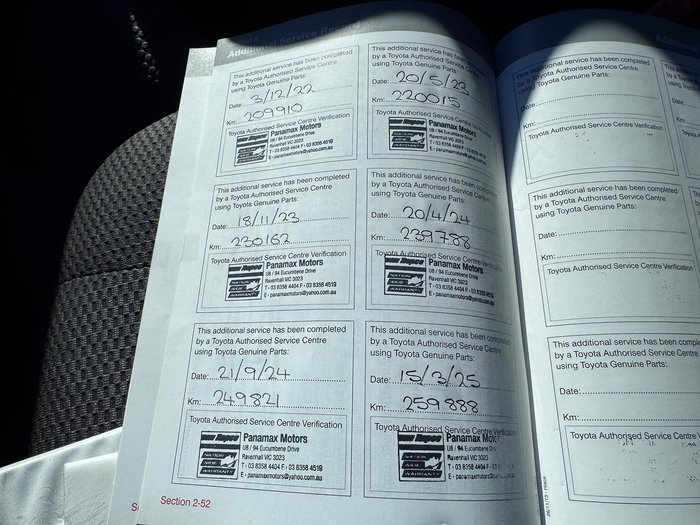 Additional Service Record
This additional service has been completed
by a Toyota Authorised Service Centre
using Toyota Genuine Parts:
Date: 3/12/22
Km: 209910
Toyota Authorised Service Centre Verification
Repco
NATION
WIDE
WARRANTY
Panamax Motors
U8 / 94 Eucumbene Drive
Ravenhall VIC 3023
T - 03 8358 4404 F - 03 8358 4519
E - panamaxmotors@yahoo.com.au
This additional service has been completed
by a Toyota Authorised Service Centre
using Toyota Genuine Parts:
Date: 20/5/23
Km: 220015
Toyota Authorised Service Centre Verification
Repco
NATION
WIDE
WARRANTY
Panamax Motors
U8 / 94 Eucumbene Drive
Ravenhall VIC 3023
T - 03 8358 4404 F - 03 8358 4519
E - panamaxmotors@yahoo.com.au
This additional service has been completed
by a Toyota Authorised Service Centre
using Toyota Genuine Parts:
Date: 18/11/23
Km: 230162
Toyota Authorised Service Centre Verification
Repco
NATION
WIDE
WARRANTY
Panamax Motors
U8 / 94 Eucumbene Drive
Ravenhall VIC 3023
T - 03 8358 4404 F - 03 8358 4519
E - panamaxmotors@yahoo.com.au
This additional service has been completed
by a Toyota Authorised Service Centre
using Toyota Genuine Parts:
Date: 20/4/24
Km: 239788
Toyota Authorised Service Centre Verification
Repco
NATION
WIDE
WARRANTY
Panamax Motors
U8 / 94 Eucumbene Drive
Ravenhall VIC 3023
T - 03 8358 4404 F - 03 8358 4519
E - panamaxmotors@yahoo.com.au
This additional service has been completed
by a Toyota Authorised Service Centre
using Toyota Genuine Parts:
Date: 21/9/24
Km: 249821
Toyota Authorised Service Centre Verification
Repco
NATION
WIDE
WARRANTY
Panamax Motors
U8 / 94 Eucumbene Drive
Ravenhall VIC 3023
T - 03 8358 4404 F - 03 8358 4519
E - panamaxmotors@yahoo.com.au
This additional service has been completed
by a Toyota Authorised Service Centre
using Toyota Genuine Parts:
Date: 15/3/25
Km: 259888
Toyota Authorised Service Centre Verification
Repco
NATION
WIDE
WARRANTY
Panamax Motors
U8 / 94 Eucumbene Drive
Ravenhall VIC 3023
T - 03 8358 4404 F - 03 8358 4519
E - panamaxmotors@yahoo.com.au
Section 2-52
This additional service has been completed
by a Toyota Authorised Service Centre
using Toyota Genuine Parts:
Date:
Km:
Toyota Authorised Service Centre Verification
This additional service has been completed
by a Toyota Authorised Service Centre
using Toyota Genuine Parts:
Date:
Km:
Toyota Authorised Service Centre Verification
This additional service has been
by a Toyota Authorised Service Centre
using Toyota Genuine Parts:
Date:
Km:
Toyota Authorised Service Centre